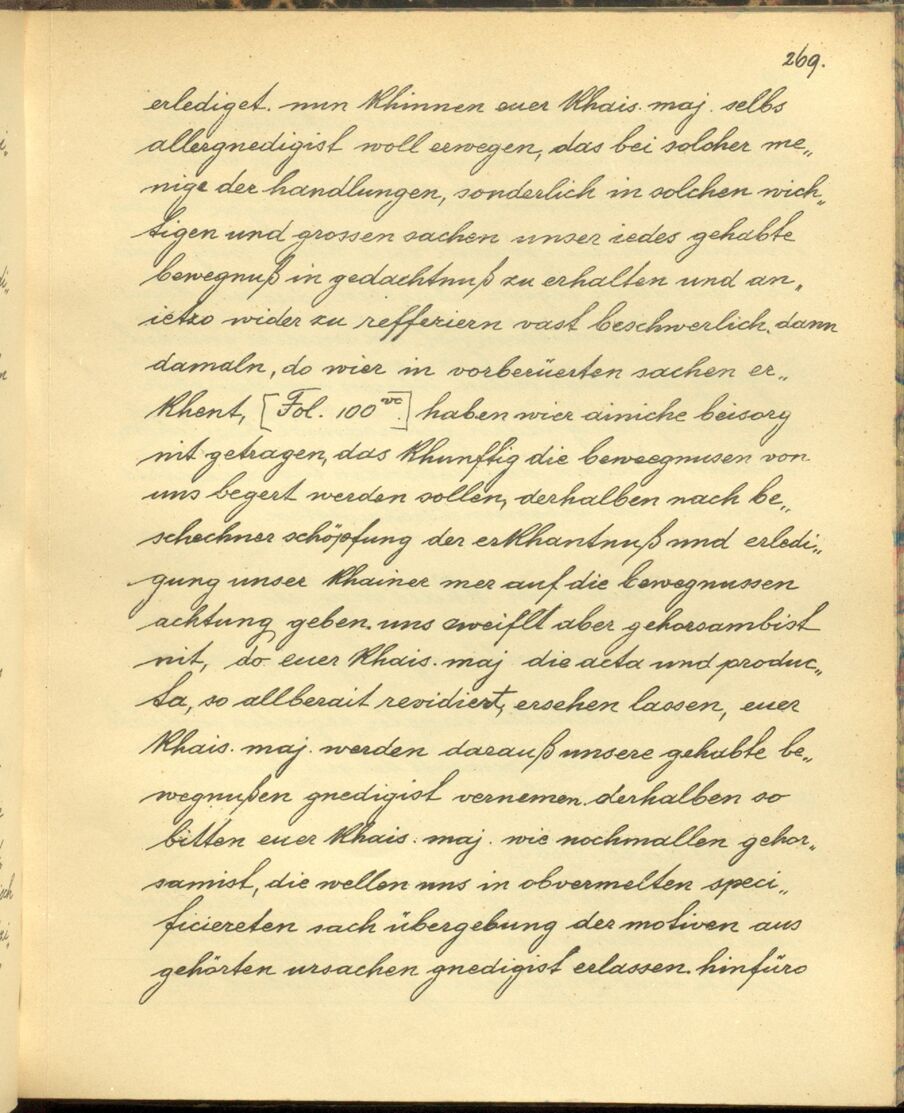 269.
erlediget. nun khinnen euer khais. maj. selbs
allergnedigist woll erwegen, das bei solcher me„
nige der handlungen, sonderlich in solchen wich„
tigen und grossen sachen unser iedes gehabte
bewegnuß in gedachtnuß zu erhalten und an„
ietzo wider zu refferiern vast beschwerlich. dann
damaln, do wier in vorberüerten sachen er„
khent, [Fol. 100 vc.] haben wier ainiche beisorg
nit getragen, das khunftig die beweegnusen von
uns begert werden sollen, derhalben nach be„
schechner schöpfung der erkhantnuß und erledi„
gung unser khainer mer auf die bewegnussen
achtung geben. uns zweiflt aber gehorsambist
nit, do euer khais. maj die acta und produc„
ta, so allberait revidiert, ersehen lassen, euer
khais. maj. werden darauß unsere gehabte be„
wegnußen gnedigist vernemen. derhalben so
bitten euer khais. maj. wie nochmallen gehor„
samist, die wellen uns in obvermelten speci„
ficiereten sach übergebung der motiven aus
gehörten ursachen gnedigist erlassen. hinfüro